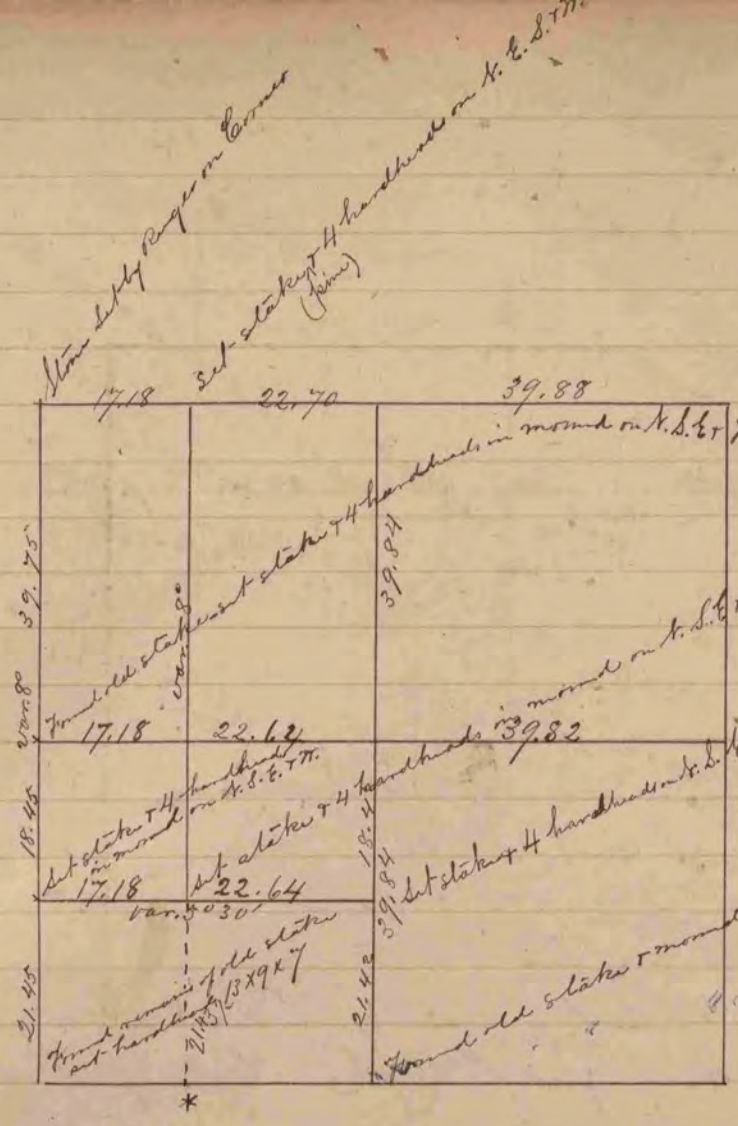 Stone Set by Ranger on Corner
Set stake & 4 hardheads on N. E. S. & W.
17.18
22.70
39.88
39.75
var. 8°
var. 8°
39.84
Found old stake set stake & 4 hardheads in mound on N. S. E &
17.18
22.62
39.82
18.45
Set stake & 4 hardheads
in mound on N. S. E. & W.
Set stake & 4 hardheads in mound on N. S. E
18.4
39.84
Set stake & 4 hardheads on N. S.
17.18
22.64
var. 5° 30'
21.45
Found remains of old stake
set hardhead
21.45
13 X 9 X 7
21.42
Found old stake & mound
*